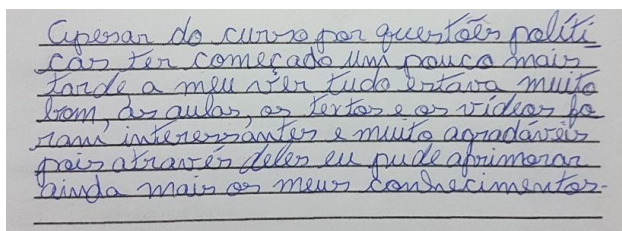 Apesar do curso por questões políti-
cas ter começado um pouco mais
tarde, a meu ver tudo estava muito
bom, as aulas, os textos e os vídeos fo
ram interessantes e muito agradáveis
pois através deles eu pude aprimorar
ainda mais os meus conhecimentos.